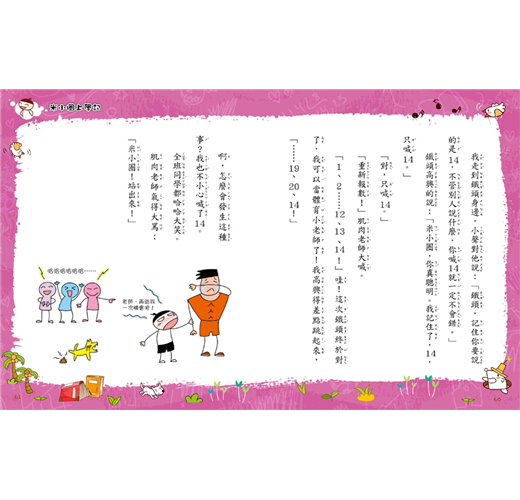 米小圈上學記
我走到鐵頭身邊，小聲對他說：「鐵頭，記住你要說
的是14，不管別人說什麼，你喊14就一定不會錯。」
鐵頭高興的說：「米小圈，你真聰明。我記住了，14，
只喊14。」
「對，只喊14。」
「重新報數！」肌肉老師大喊。
「1、2……12、13、14！」哇！這次鐵頭終於對
了，我可以當體育小老師了！我高興得差點跳起來，
「……19、20、14！」
啊，怎麼會發生這種
事？我也不小心喊了14。
全班同學都哈哈大笑。
肌肉老師氣得大罵：
「米小圈！站出來！」
老師，再給我
一次機會吧！